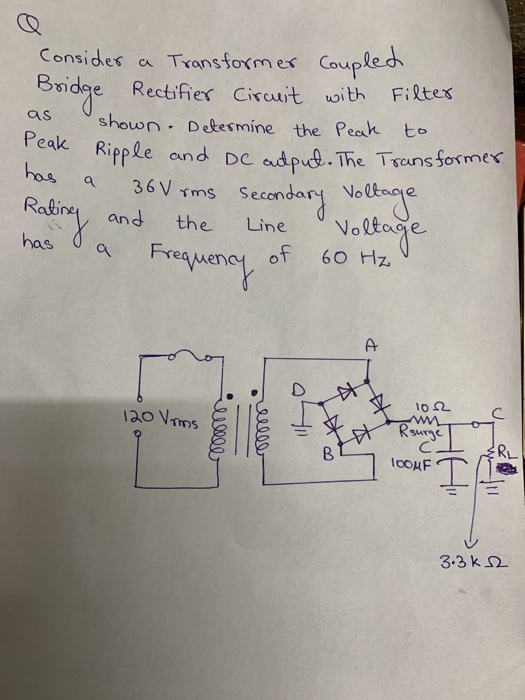 Q
Consider a Transformer Coupled
Bridge Rectifier Circuit with Filter
as shown. Determine the Peak to
Peak Ripple and DC output. The Transformer
has a 36V rms Secondary Voltage
Rating and the Line Voltage
has a Frequency of 60 Hz
A
D
10Ω
C
120 Vrms
Rsurge
C
B
100μF
RL
3.3kΩ